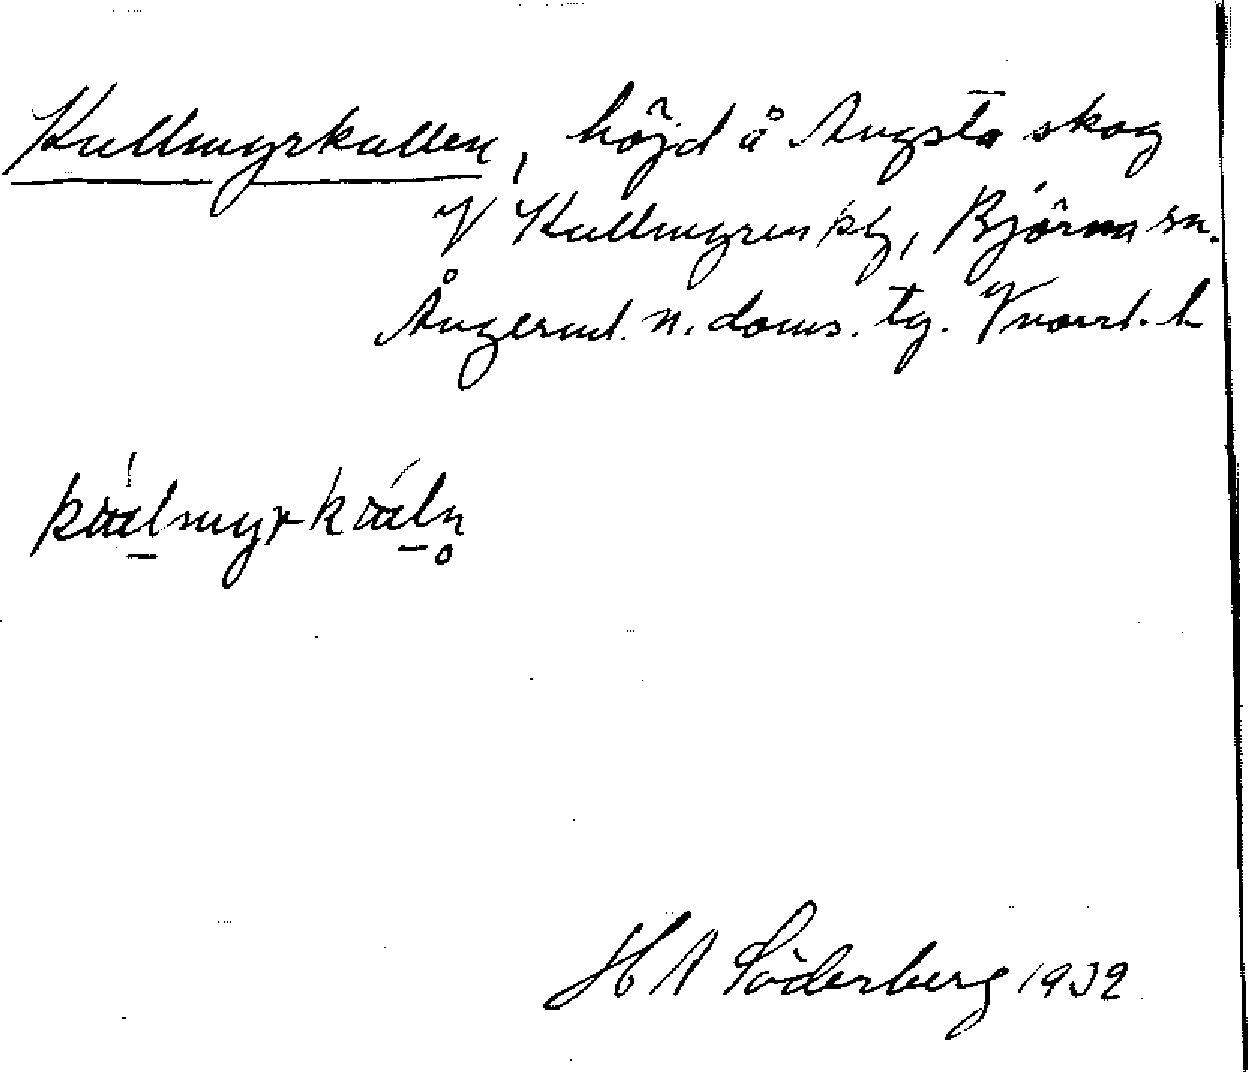 Kullmyrkullen, höjd å Ängsta skog
V Kullmyren kbl, Björna sn.
Ångerml. n. doms. tg. Vnorrl. l.
kullmyrkulln
H A Söderberg 1932